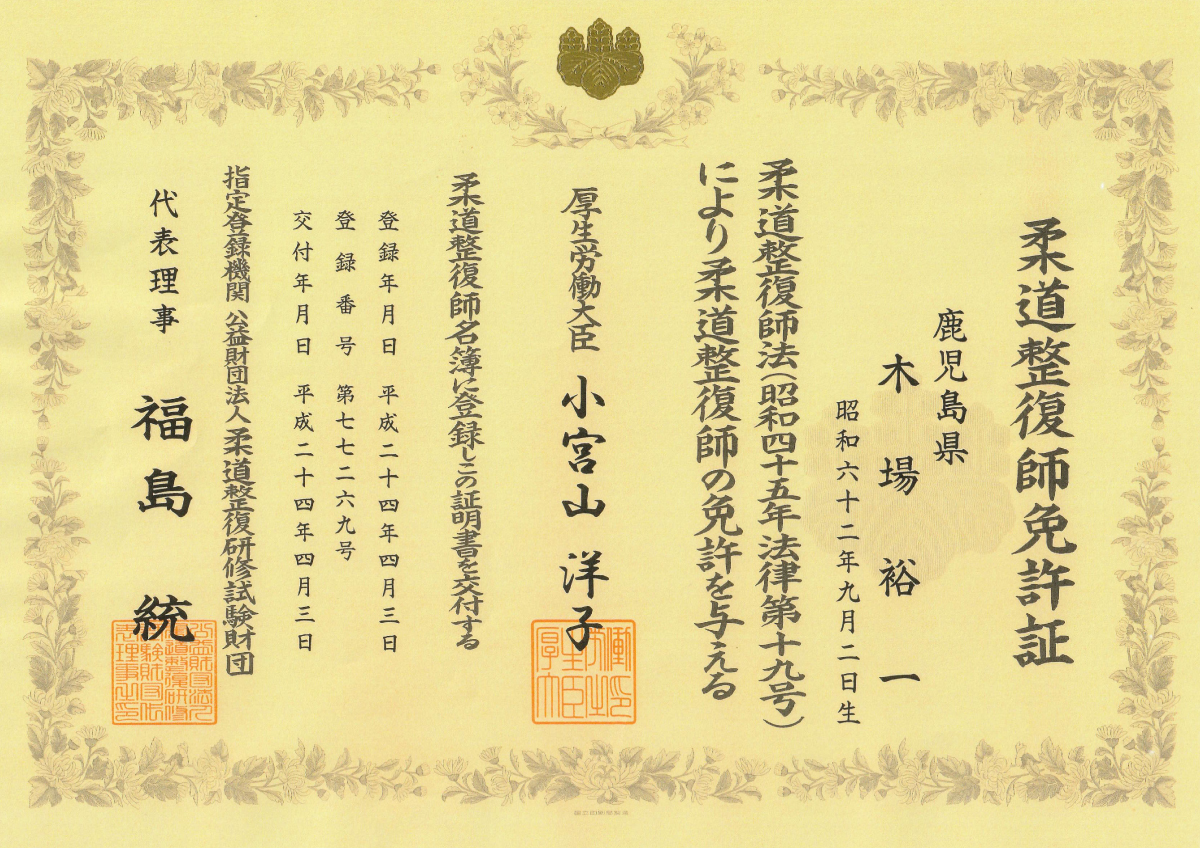 柔道整復師免許証
鹿児島県
木場裕一
昭和六十二年九月二日生
柔道整復師法(昭和四十五年法律第十九号)
により柔道整復師の免許を与える
厚生労働大臣 小宮山 洋子
柔道整復師名簿に登録しこの証明書を交付する
登録年月日 平成二十四年四月三日
登録番号 第七七二六九号
交付年月日 平成二十四年四月三日
指定登録機関 公益財団法人 柔道整復研修試験財団
代表理事 福島 統